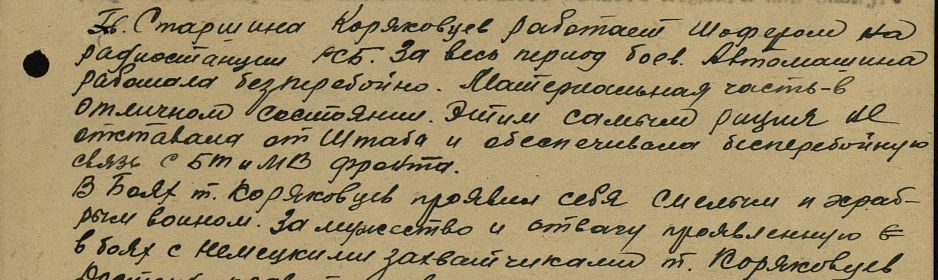 Гв. Старшина Коряковцев работает Шофером на
радиостанции РСБ. За весь период боев. Автомашина
работала безперебойно. Материальная часть-в
отличном состоянии. Этим самым рация не
отставала от Штаба и обеспечивала бесперебойную
связь с БТ и МВ фронта.
В Боях т. Коряковцев проявил себя смелым и храб-
рым воином. За мужество и отвагу проявленную
в боях с немецкими захватчиками т. Коряковцев